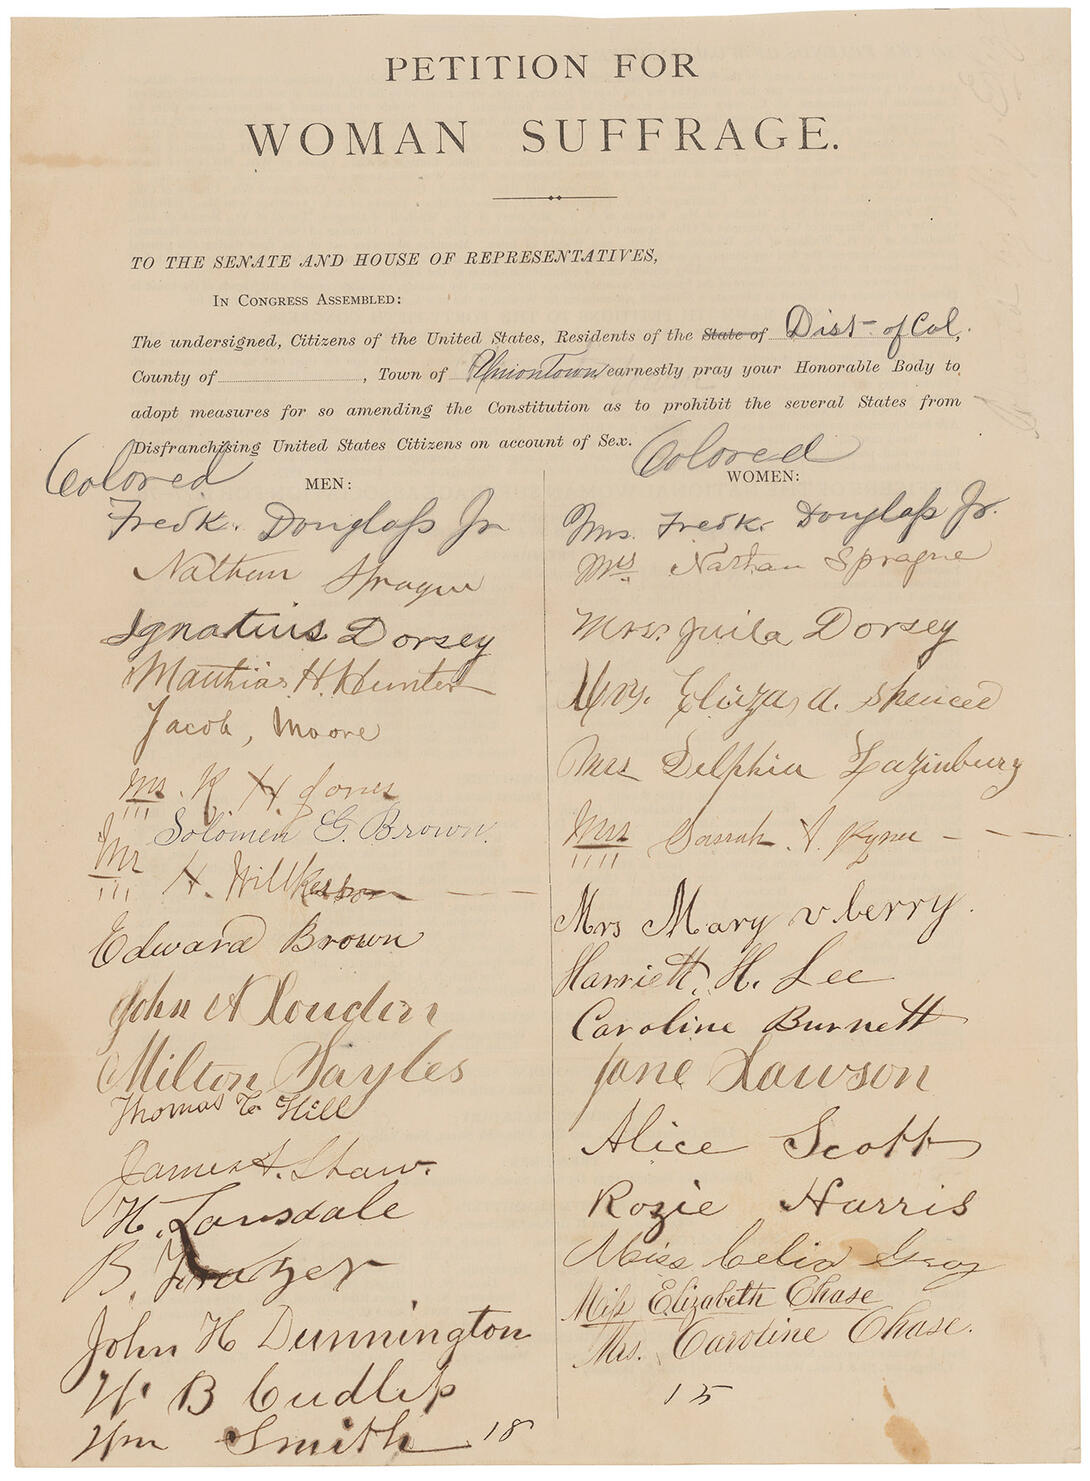 PETITION FOR
WOMAN SUFFRAGE.
TO THE SENATE AND HOUSE OF REPRESENTATIVES,
IN CONGRESS ASSEMBLED:
The undersigned, Citizens of the United States, Residents of the State of Dist. of Col,
County of , Town of Uniontown earnestly pray your Honorable Body to
adopt measures for so amending the Constitution as to prohibit the several States from
Disfranchising United States Citizens on account of Sex.
Colored MEN:
Fredk. Douglass Jr
Nathan Sprague
Ignatius Dorsey
Matthias H. Hunter
Jacob, Moore
Mr. R. H Jones
Solomen G. Brown.
Mr H. Wilkerson
Edward Brown
John A
Milton Sayles
Thomas T. Hill
James A. Shaw.
H. Lonsdale
B.
John H Dunnington
W B Cudlip
Wm Smith 18
Colored WOMEN:
Mrs. Fredk. Douglass Jr.
Mrs Nathan Sprague
Mrs. Juila Dorsey
Mrs. Elizza, A. Spencer
Mrs Delphia
Mrs Sarrah A.
Mrs Mary v berry.
Harriett. H. Lee
Caroline Burnett
Jane Lawson
Alice Scott
Rozie Harris
Miss Celia Gray
Miss Elizabeth Chase
Mrs. Caroline Chase.
15